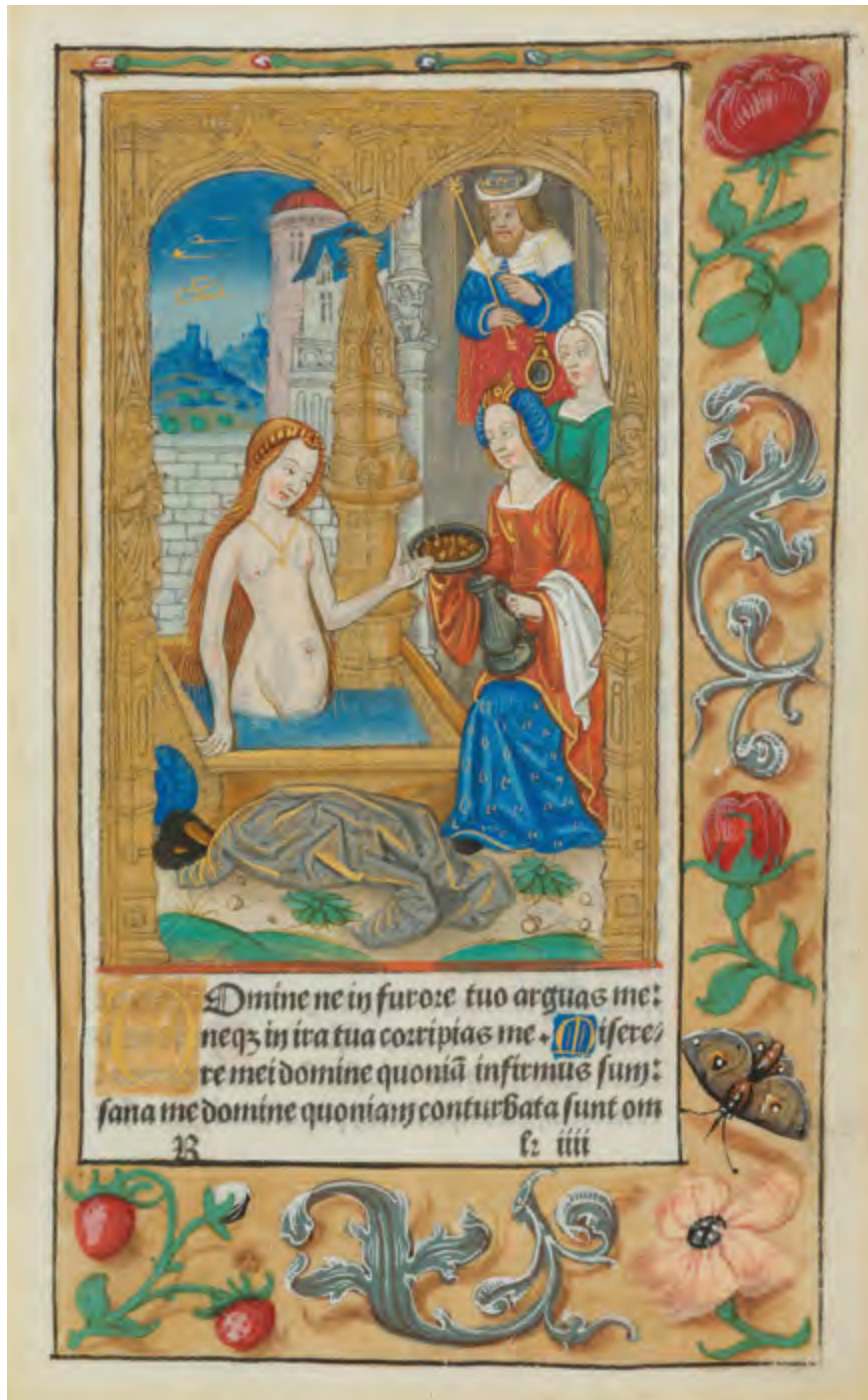 Domine ne in furore tuo arguas me:
neqꝫ in ira tua corripias me. Misere/
re mei domine quoniā infirmus sum:
sana me domine quoniam conturbata sunt om
R
iiii